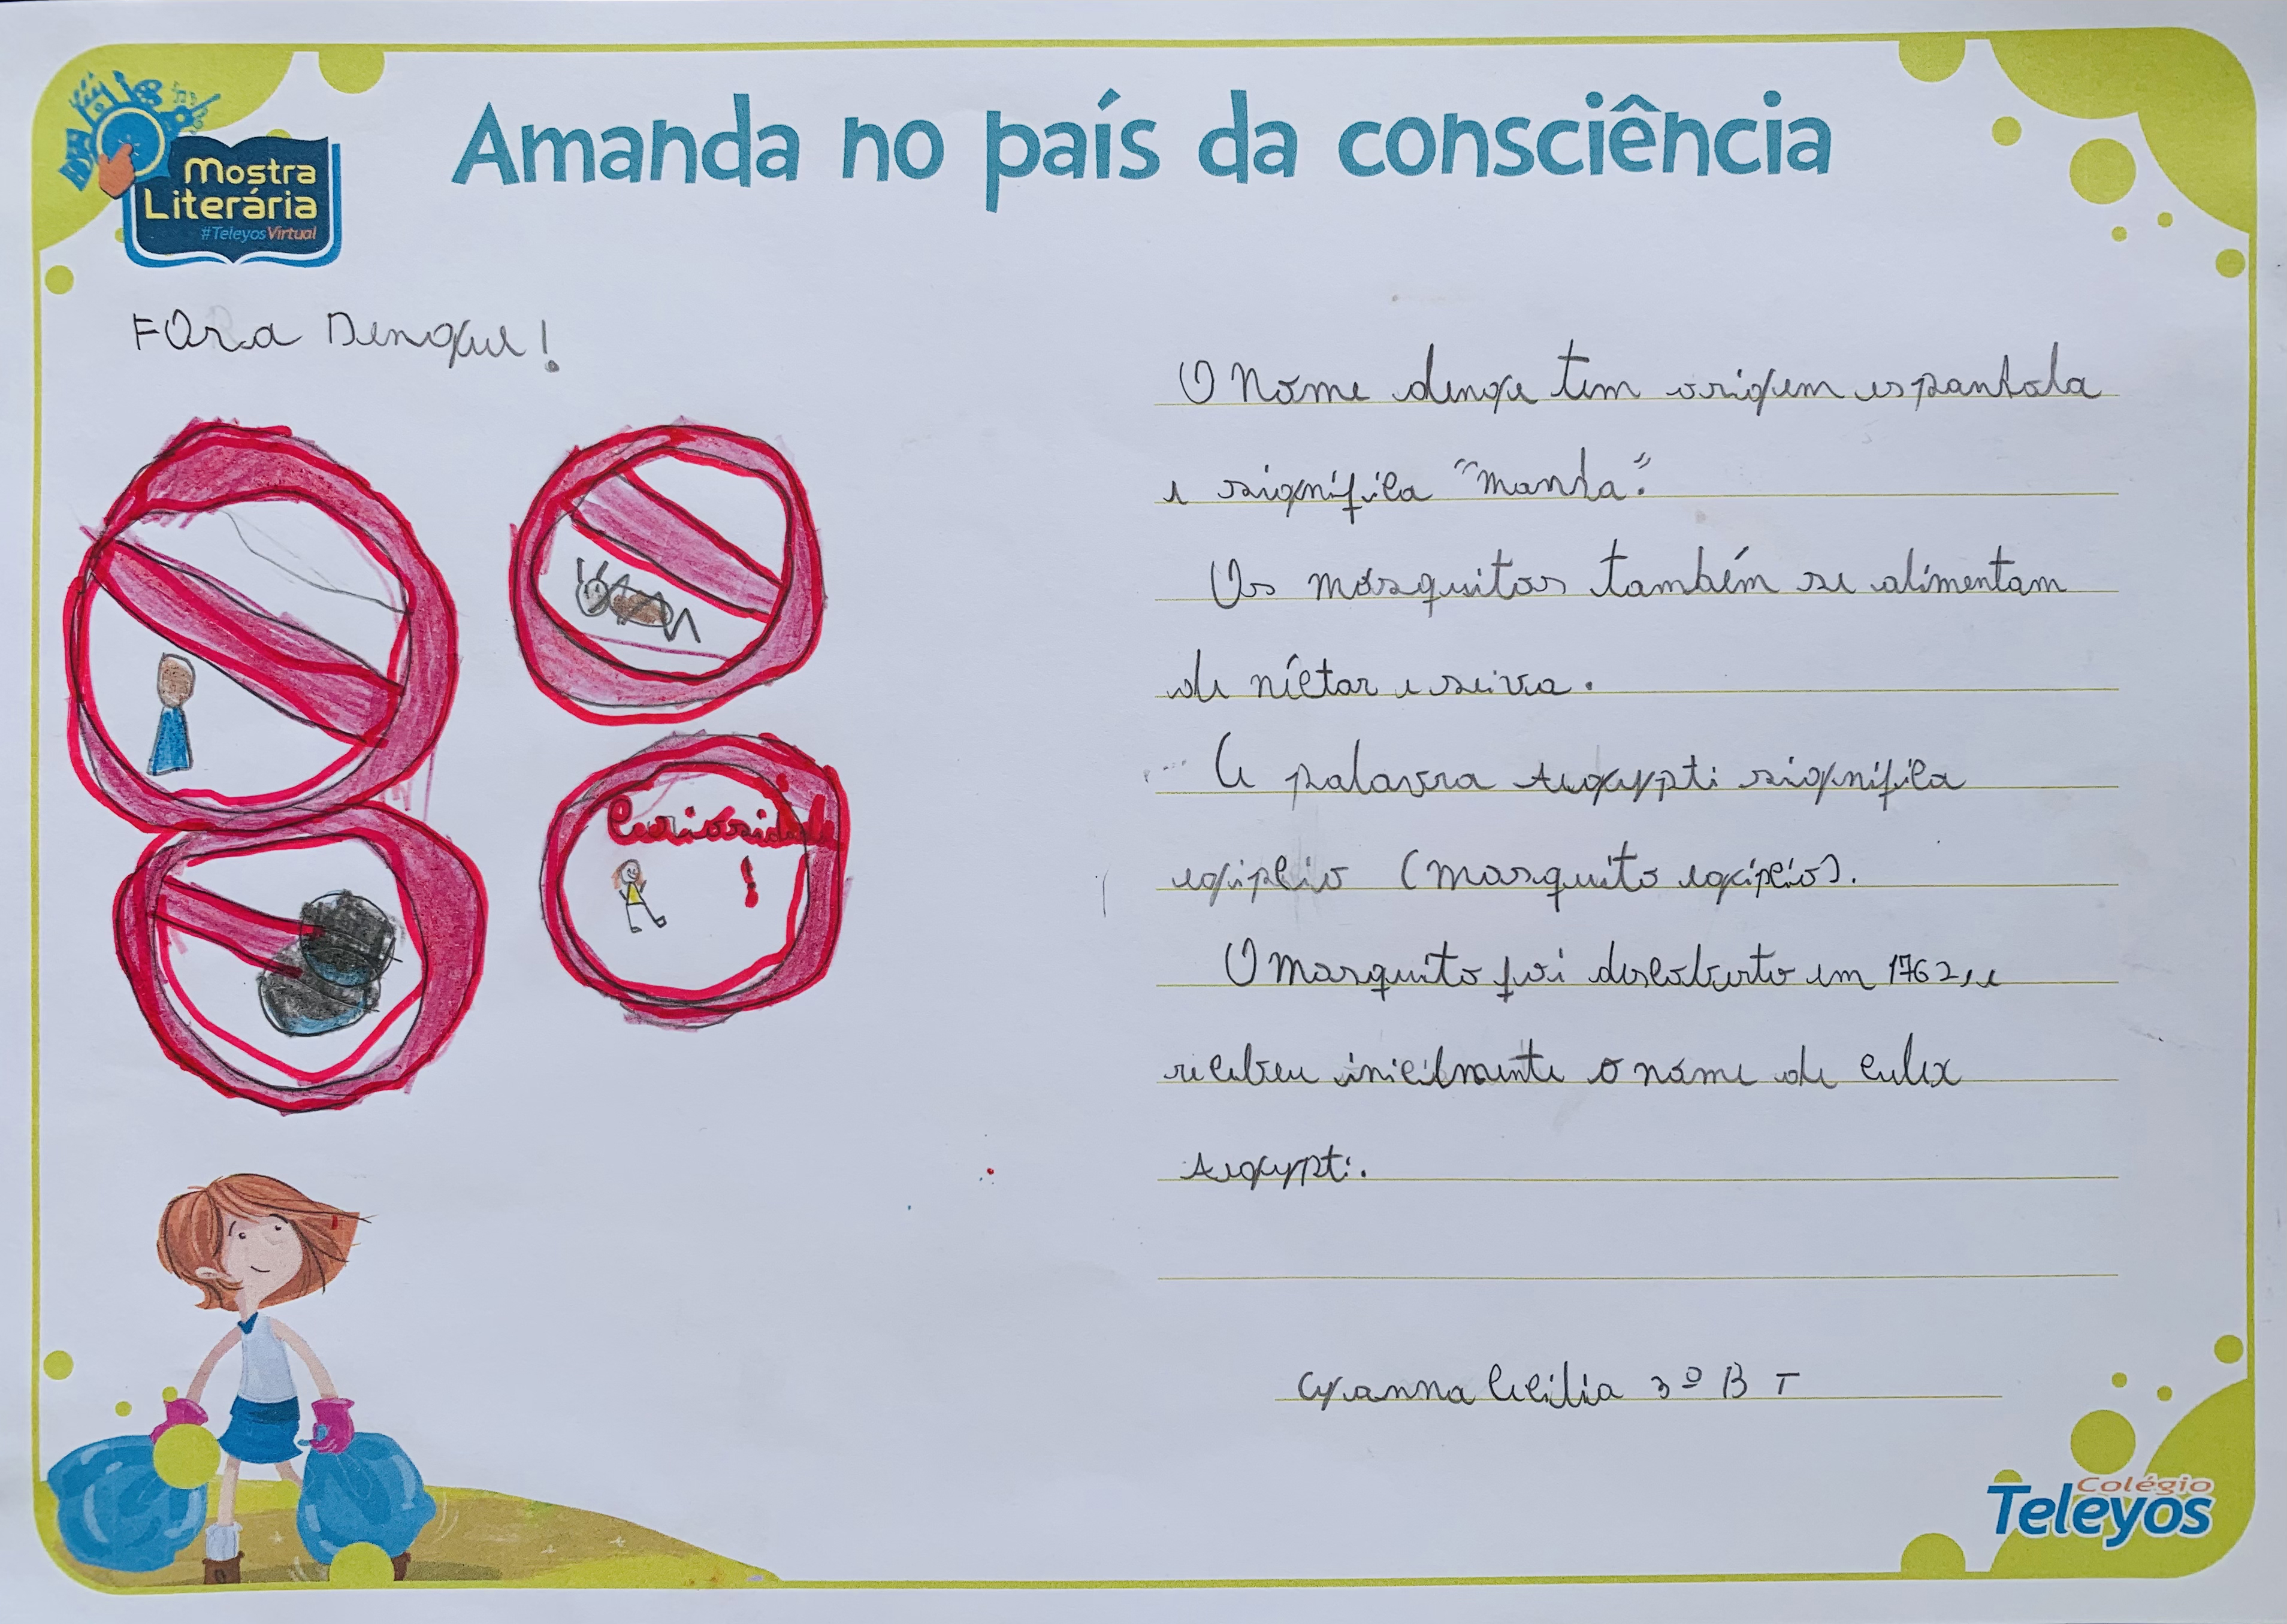 Amanda no país da consciência
Mostra
Literária
#TeleyosVirtual
FOra Dengue!
Curiosidade
!
O Nome denge tem origem espanhola
e significa "manha".
Os mosquitos também se alimentam
de néctar e seiva.
A palavra aegypti significa
egípcio (mosquito egípcio).
O mosquito foi descoberto em 1762, e
recebeu inicilmente o nome de culex
aegypti.
Cecília 3º B T
Colégio
Teleyos